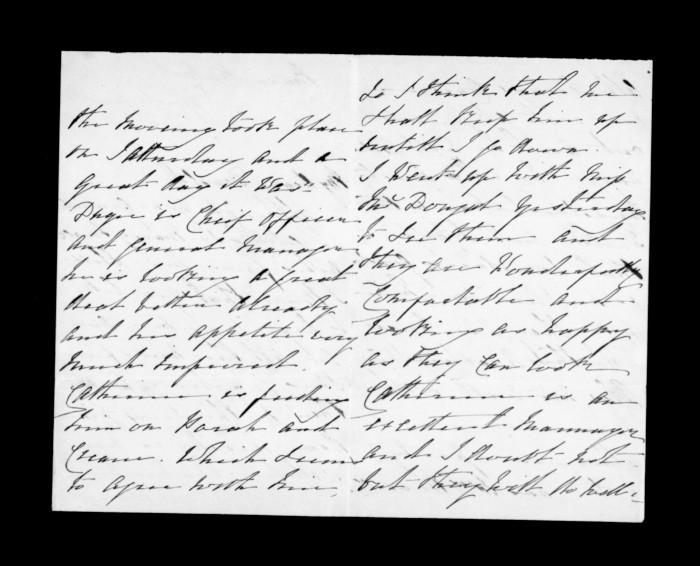 the moving took place
on Satturday and a
great day it was.
is Cheif officer
and general Manager
he is looking a great
deal better already
and his appetite very
much improved.
Catherine is feeding
him on Porah and
Cream. Which seems
to agree with him.
So I think that we
shall keep him up
untill I go down.
I Went up with Miss
Mc Dougal yesterday
to see them and
they are Wonderfully
Comfortable and
looking as happy
as they Can look
Catherine is an
excellent Mannager
and I doubt not
but they will do well.